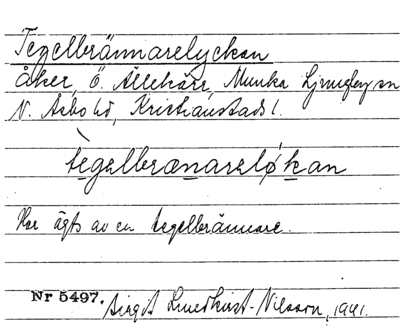 Tegelbrännarelyckan
åker, Ö. Ällekärr, Munka Ljungby sn
N. Åsbo hd, Kristianstads l.
tegalbrænaraløkan
Har ägts av en tegelbrännare.
Nr 5497. Birgit Lundkvist-Nilsson, 1941.